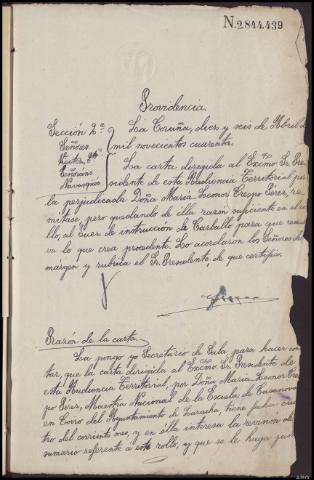 N.2844.439
Providencia.
Sección 2ª
Señores
La Coruña, diez y seis de Abril de
mil novecientos cuarenta.
La carta dirigida al Excmo Sr Pre
sidente de esta Audiencia Territorial por
la perjudicada Doña María Leonor Crespo Pérez, re
mítase, pero quedando de ella razón suficiente en el ro
llo, al Juez de instrucción de Carballo para que resuel
va lo que crea procedente. Lo acordaron los Señores del
márgen y rubrica el Sr. Presidente de que certifico.
Razón de la carta.
La pongo yo Secretario de Sala, para hacer cons
tar, que la carta dirigida al Excmo Sr Presidente de
esta Audiencia Territorial, por Doña María Leonor Cres
po Pérez, Maestra Nacional de la Escuela de
en Coiro del Ayuntamiento de Laracha, tiene fecha
tro del corriente mes, y en ella interesa la revisión del
sumario referente a este rollo, y que se le haga jus